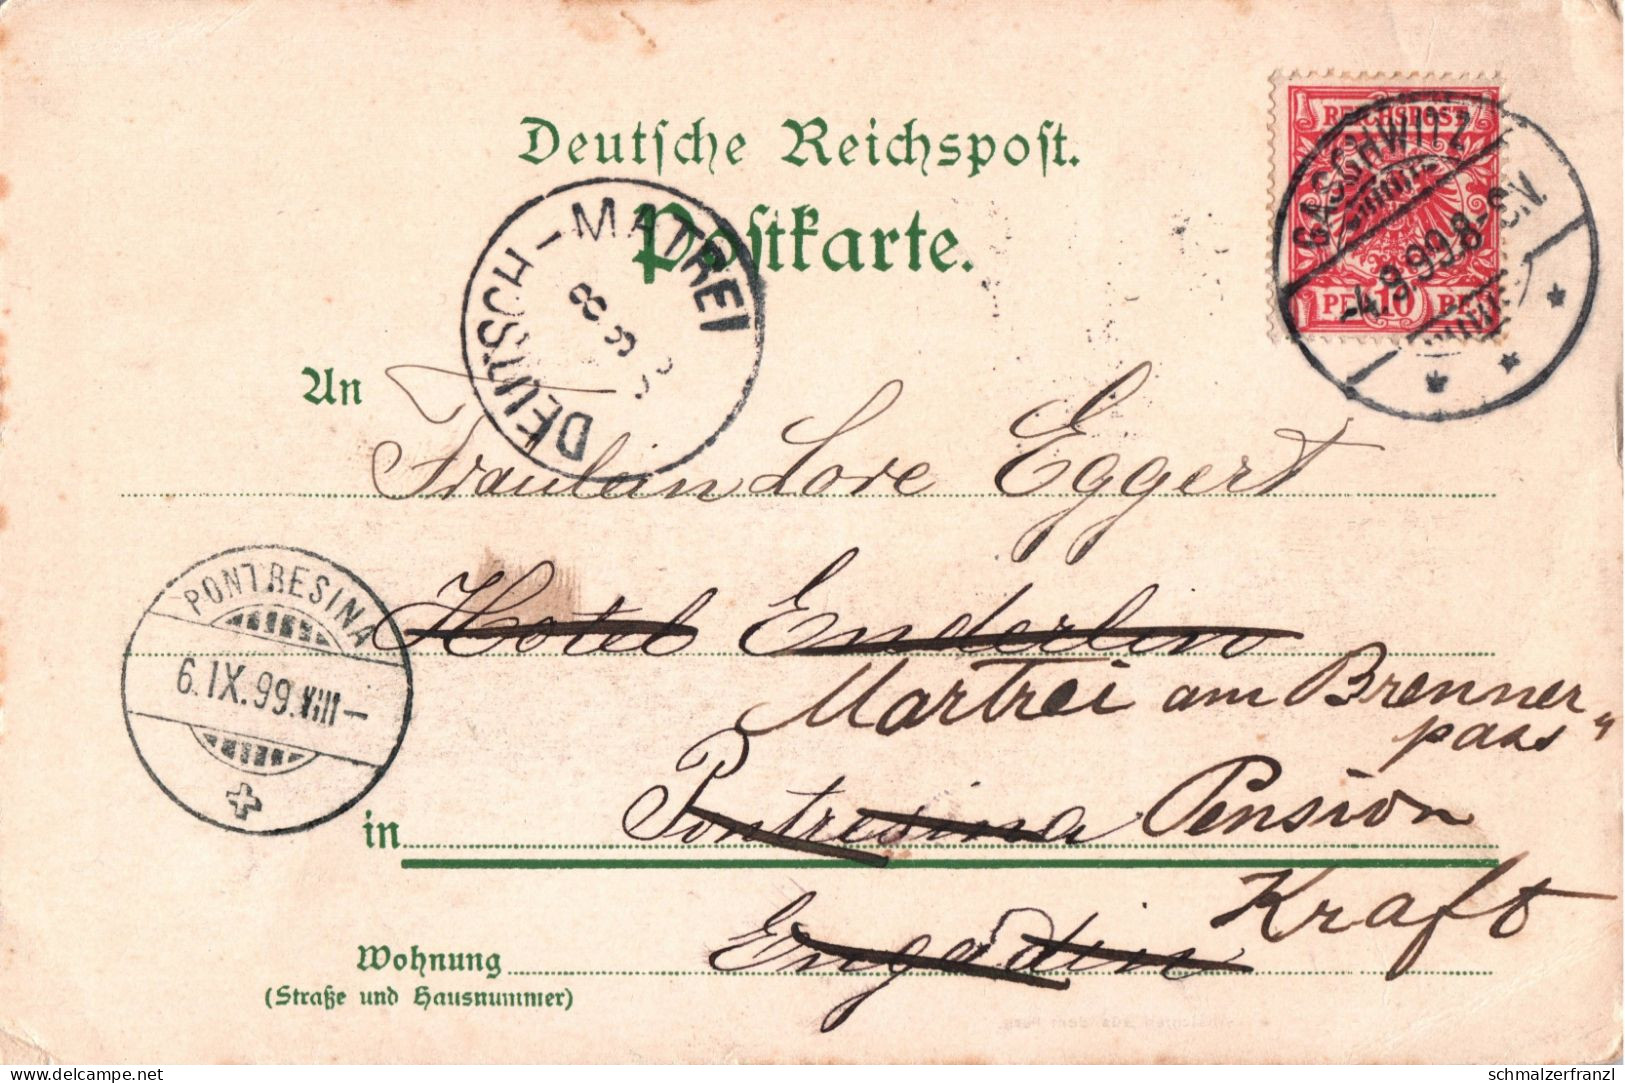 Deutsche Reichspost.
Postkarte.
REICHSPOST
PF. 10 PF.
GASCHWITZ
-4.9.99.8-9N.
DEUTSCH-MATREI
8 9 99
An
Fräulein Lore Eggert
Hotel Enderlin
Martrei am Brenner
pass"
PONTRESINA
6.IX.99.VIII-
in Pontresina Pension
Kraft
Wohnung Engadin
(Straße und Hausnummer)
delcampe.net
schmalzerfranzl